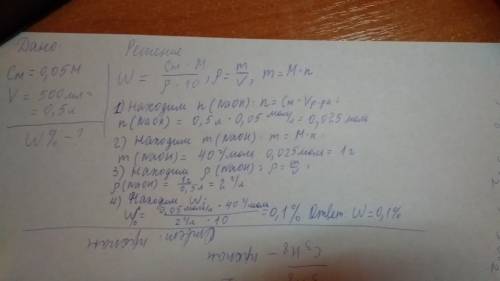 Дано
Cм = 0,05M
V = 500мл =
= 0,5л
W% - ?
Решение
W = Cм · M / ρ · 10 , ρ = m/V , m = M · n
1) Находим n (NaOH): n = Cм · Vр-ра :
n (NaOH) = 0,5л · 0,05 моль/л = 0,025моль
2) Находим m (NaOH): m = M · n :
m (NaOH) = 40 г/моль · 0,025моль = 1г
3) Находим ρ (NaOH) = ρ = m/V :
ρ (NaOH) = 1г / 0,5л = 2 г/л
4) Находим W:
W% = 0,05моль/л · 40г/моль / 2г/л · 10 = 0,1% Ответ W = 0,1%
C3H8 - пропан